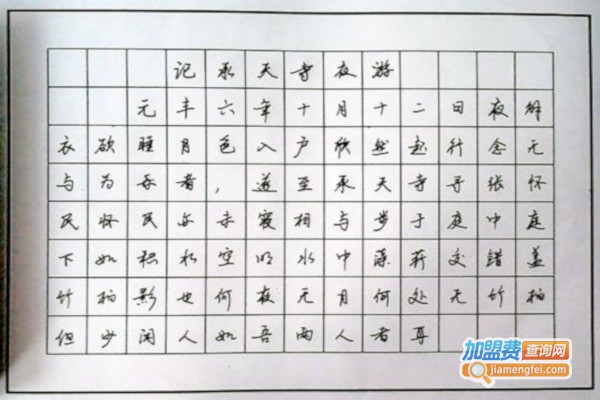 记承天寺夜游
元丰六年十月十二日夜解
衣欲睡月色入户欣然起行念无
与为乐者，遂至承天寺寻张怀
民怀民亦未寝相与步于庭中庭
下如积水空明水中藻荇交错盖
竹柏影也何夜无月何处无竹柏
但少闲人如吾两人者耳
加盟费查询网
jiamengfei.com